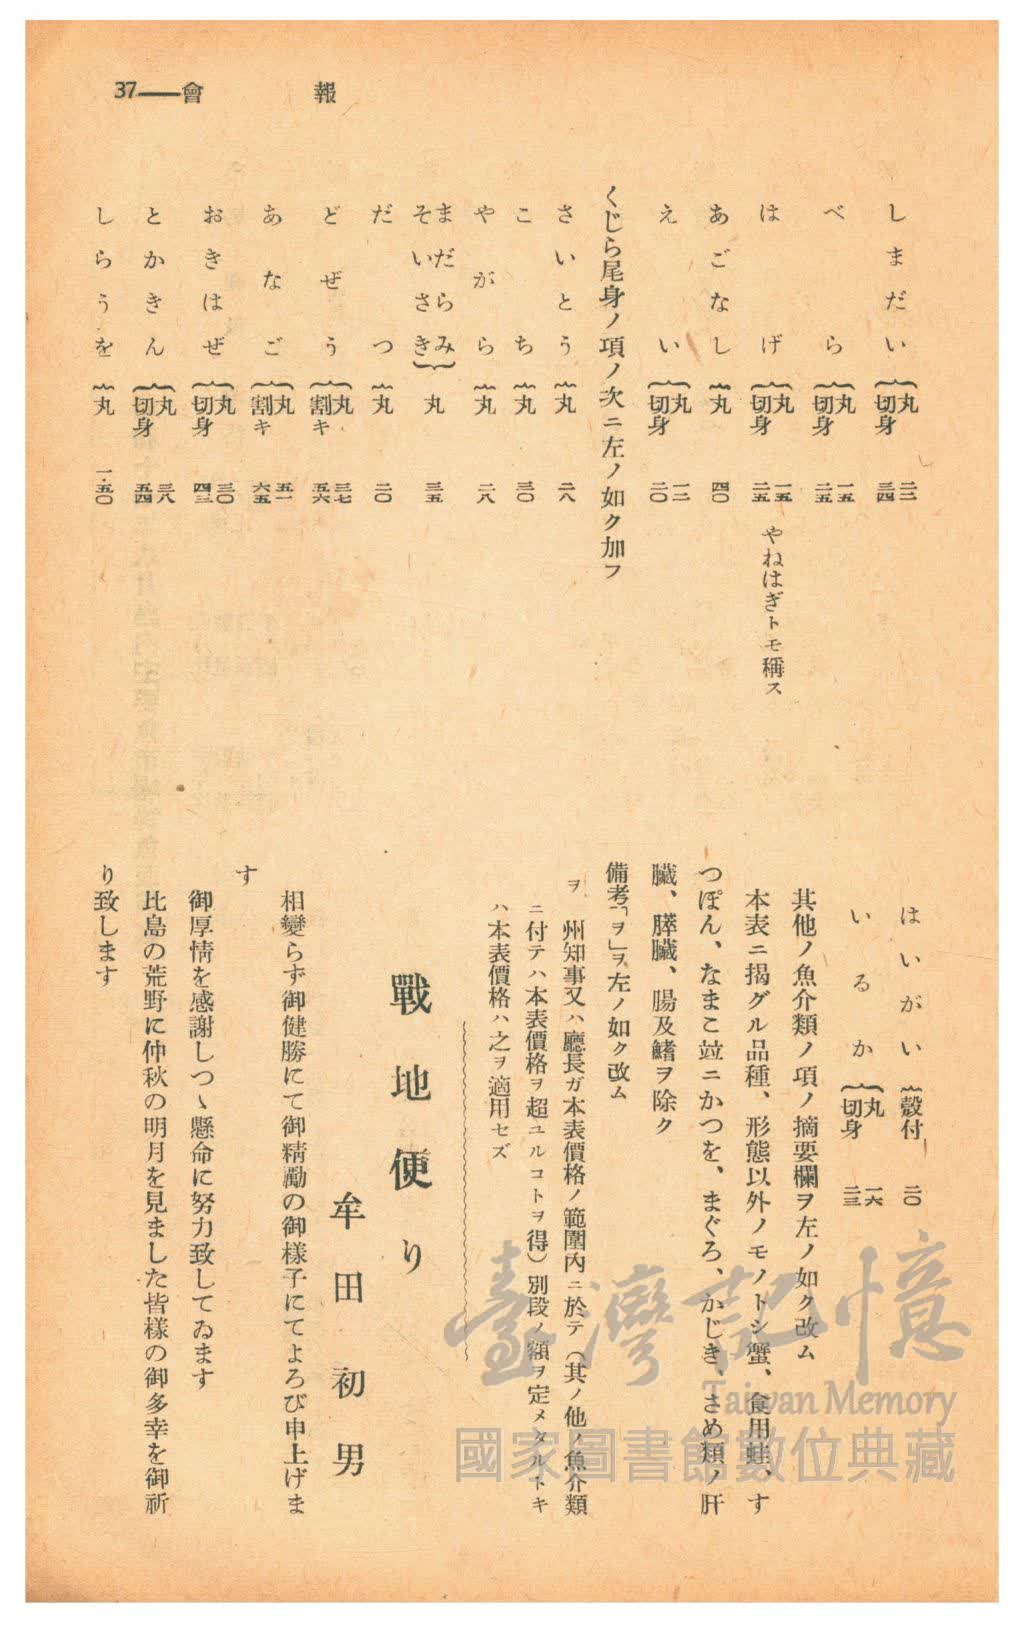 37——會報
しまだい{丸 二二
切身 三四
べら{丸 一五
切身 二五
はげ{丸 一五
切身 二五 やねはぎトモ稱ス
あごなし{丸 四〇
えい{丸 一二
切身 二〇
くじら尾身ノ項ノ次ニ左ノ如ク加フ
さいとう{丸 二八
こち{丸 三〇
やがら{丸 二八
まだらみ
そいさき}丸 三五
だつ{丸 二〇
どぜう{丸 三七
割キ 五六
あなご{丸 五一
割キ 六五
おきはぜ{丸 三〇
切身 四三
とかきん{丸 三八
切身 五四
しらうを{丸 一・五〇
はいがい{殼付 二〇
いるか{丸 一六
切身 二三
其他ノ魚介類ノ項ノ摘要欄ヲ左ノ如ク改ム
本表ニ揭グル品種、形態以外ノモノトシ蟹、食用蛙、す
つぽん、なまこ竝ニかつを、まぐろ、かじき、さめ類ノ肝
臟、膵臟、腸及鰭ヲ除ク
備考「ヲ」ヲ左ノ如ク改ム
ヲ 州知事又ハ廳長ガ本表價格ノ範圍內ニ於テ(其ノ他ノ魚介類
ニ付テハ本表價格ヲ超ユルコトヲ得)別段ノ額ヲ定メタルトキ
ハ本表價格ハ之ヲ適用セズ
戰地便り
牟田初男
相變らず御健勝にて御精勵の御樣子にてよろび申上げま
す
御厚情を感謝しつゝ懸命に努力致してゐます
比島の荒野に仲秋の明月を見ました皆樣の御多幸を御祈
り致します
臺灣記憶
Taiwan Memory
國家圖書館數位典藏